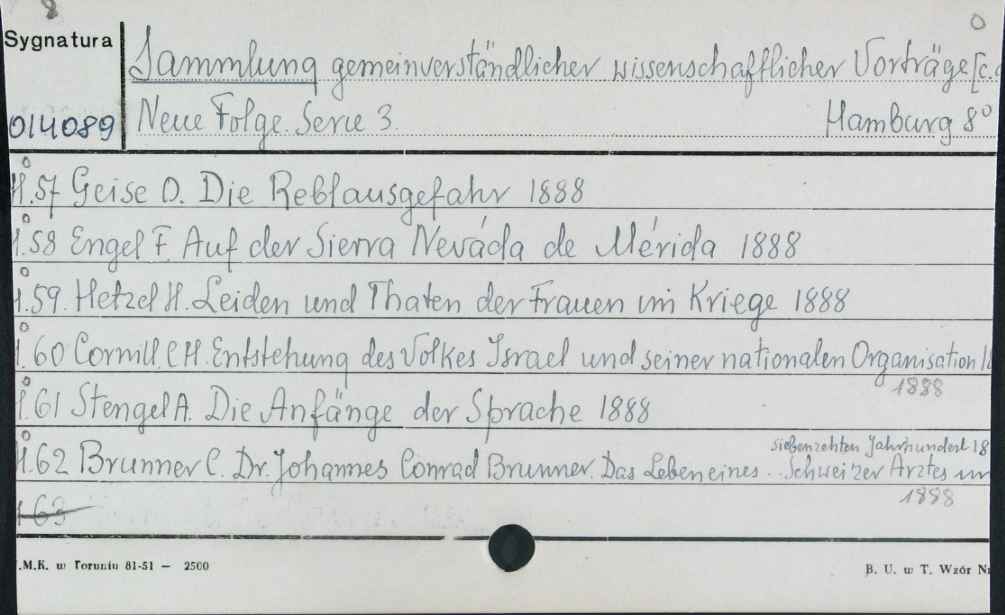 8
Sygnatura
Sammlung gemeinverständlicher wissenschaftlicher Vorträge [c.
014089 Neue Folge. Serie 3. Hamburg 8°
H.57 Geise O. Die Reblausgefahr 1888
H.58 Engel F. Auf der Sierra Neváda de Mérida 1888
H.59. Hetzel H. Leiden und Thaten der Frauen im Kriege 1888
H.60 Cornill C H. Entstehung des Volkes Israel und seiner nationalen Organisation
1888
H.61 Stengel A. Die Anfänge der Sprache 1888
siebenzehten Jahrhundert 18
H.62 Brunner C. Dr. Johannes Conrad Brunner. Das Leben eines .. Schweizer Arztes im
1888
H 63
.M.K. w Toruniu 81-51 — 2500 B. U. w T. Wzór Nr